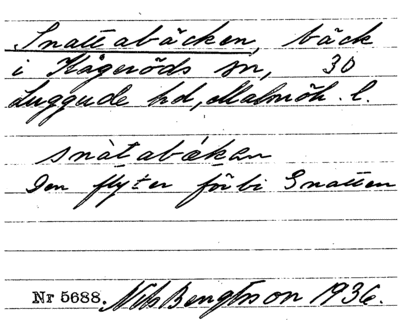 Snattabäcken, bäck
i Kågeröds sn, 30
Luggude hd, Malmöh. l.
snàtabǽkan
Den flyter förbi Snatten
Nr 5688. Nils Bengtsson 1936.